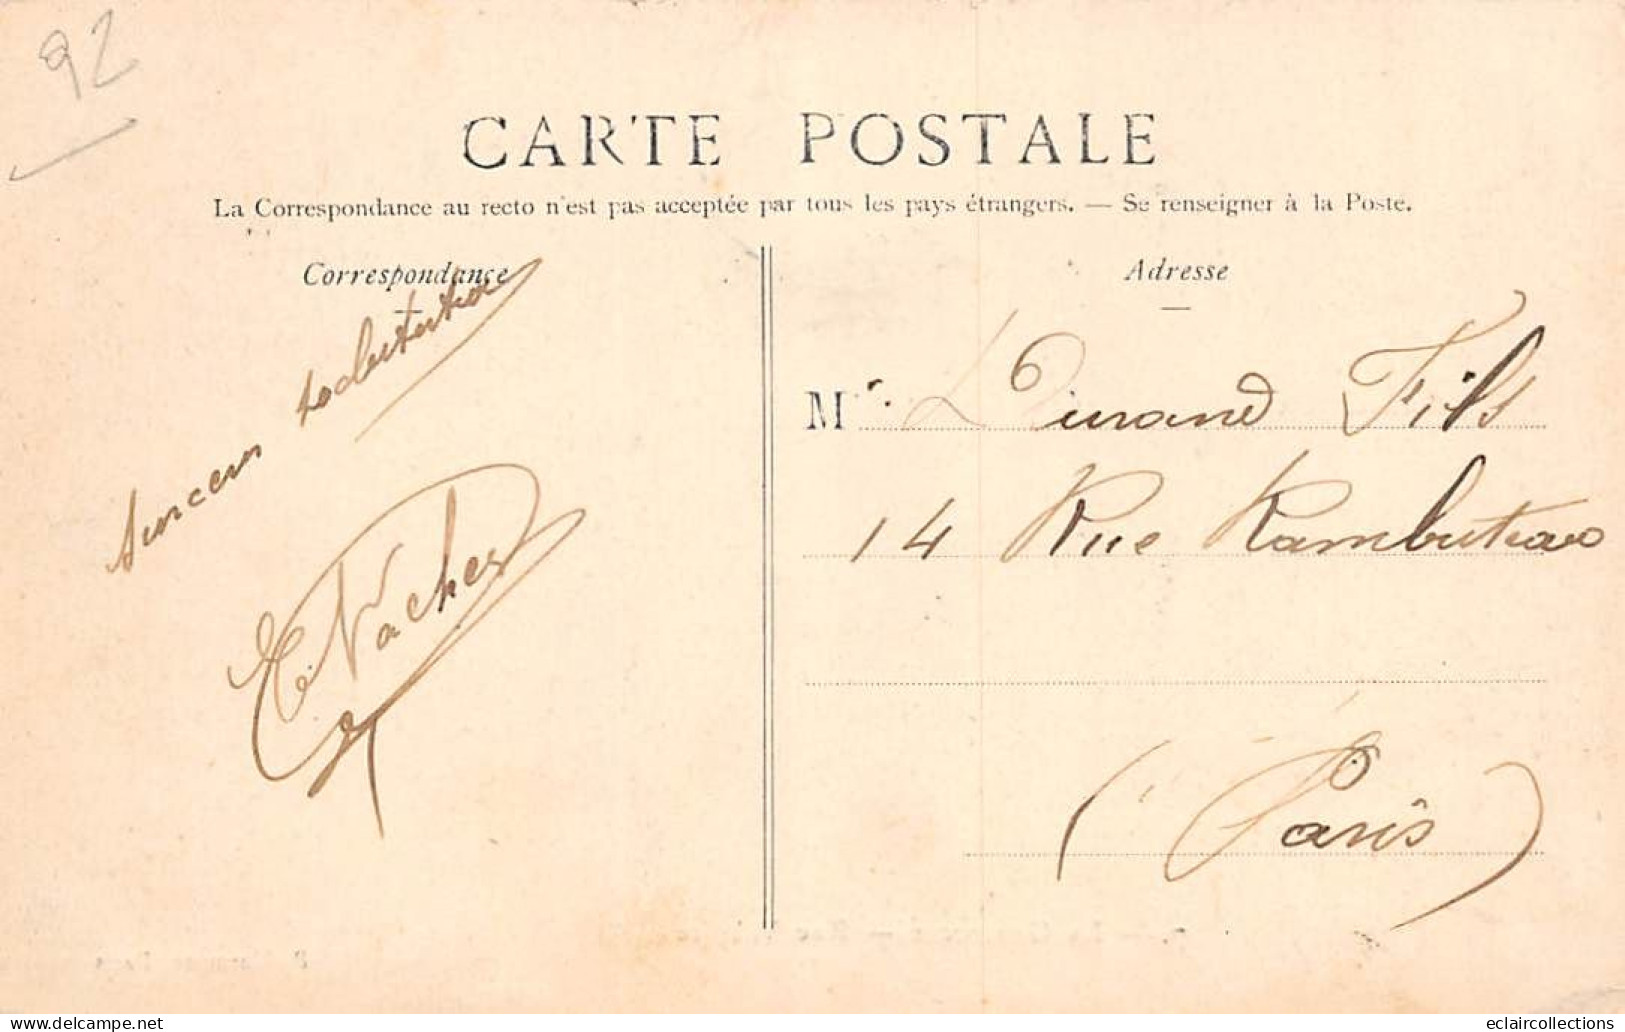 92
CARTE POSTALE
La Correspondance au recto n'est pas acceptée par tous les pays étrangers. — Se renseigner à la Poste.
Correspondance
Adresse
M Durand Fils
14 Rue Rambuteau
(Paris)
E Vacher
delcampe.net
eclaircollections